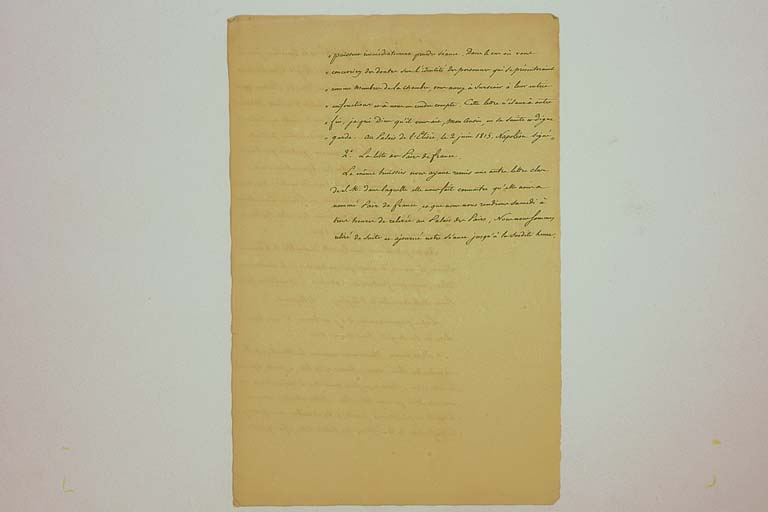 « puissent immédiatement prendre séance. Dans le cas où vous
« concevriez des doutes sur l'identité des personnes qui se présenteraient
« comme membres de la chambre, vous aurez à surseoir à leur entrée
« en fonctions et à nous en rendre compte. Cette lettre n'étant à autre
« fin, je prie Dieu qu'il vous ait, mon Cousin, en sa sainte et digne
« garde. Au Palais de l'Elisée, le 2 juin 1815. Napoléon signé.
2º La liste des Pairs de france
Le même huissier nous ayant remis une autre lettre close
de S. M. dans laquelle elle nous fait connaitre qu'elle nous a
nommé Pair de france, et que nous nous rendions samedi à
trois heures de relevée au Palais des Pairs, Nous nous sommes
retiré de suite et ajourné notre séance jusqu'à la susdite heure.